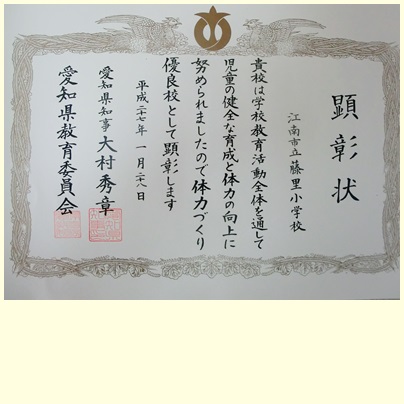 顕彰状
江南市立藤里小学校
貴校は学校教育活動全体を通して
児童の健全な育成と体力の向上に
努められましたので体力づくり
優良校として顕彰します
平成二十七年一月二十八日
愛知県知事大村秀章
愛知県教育委員会